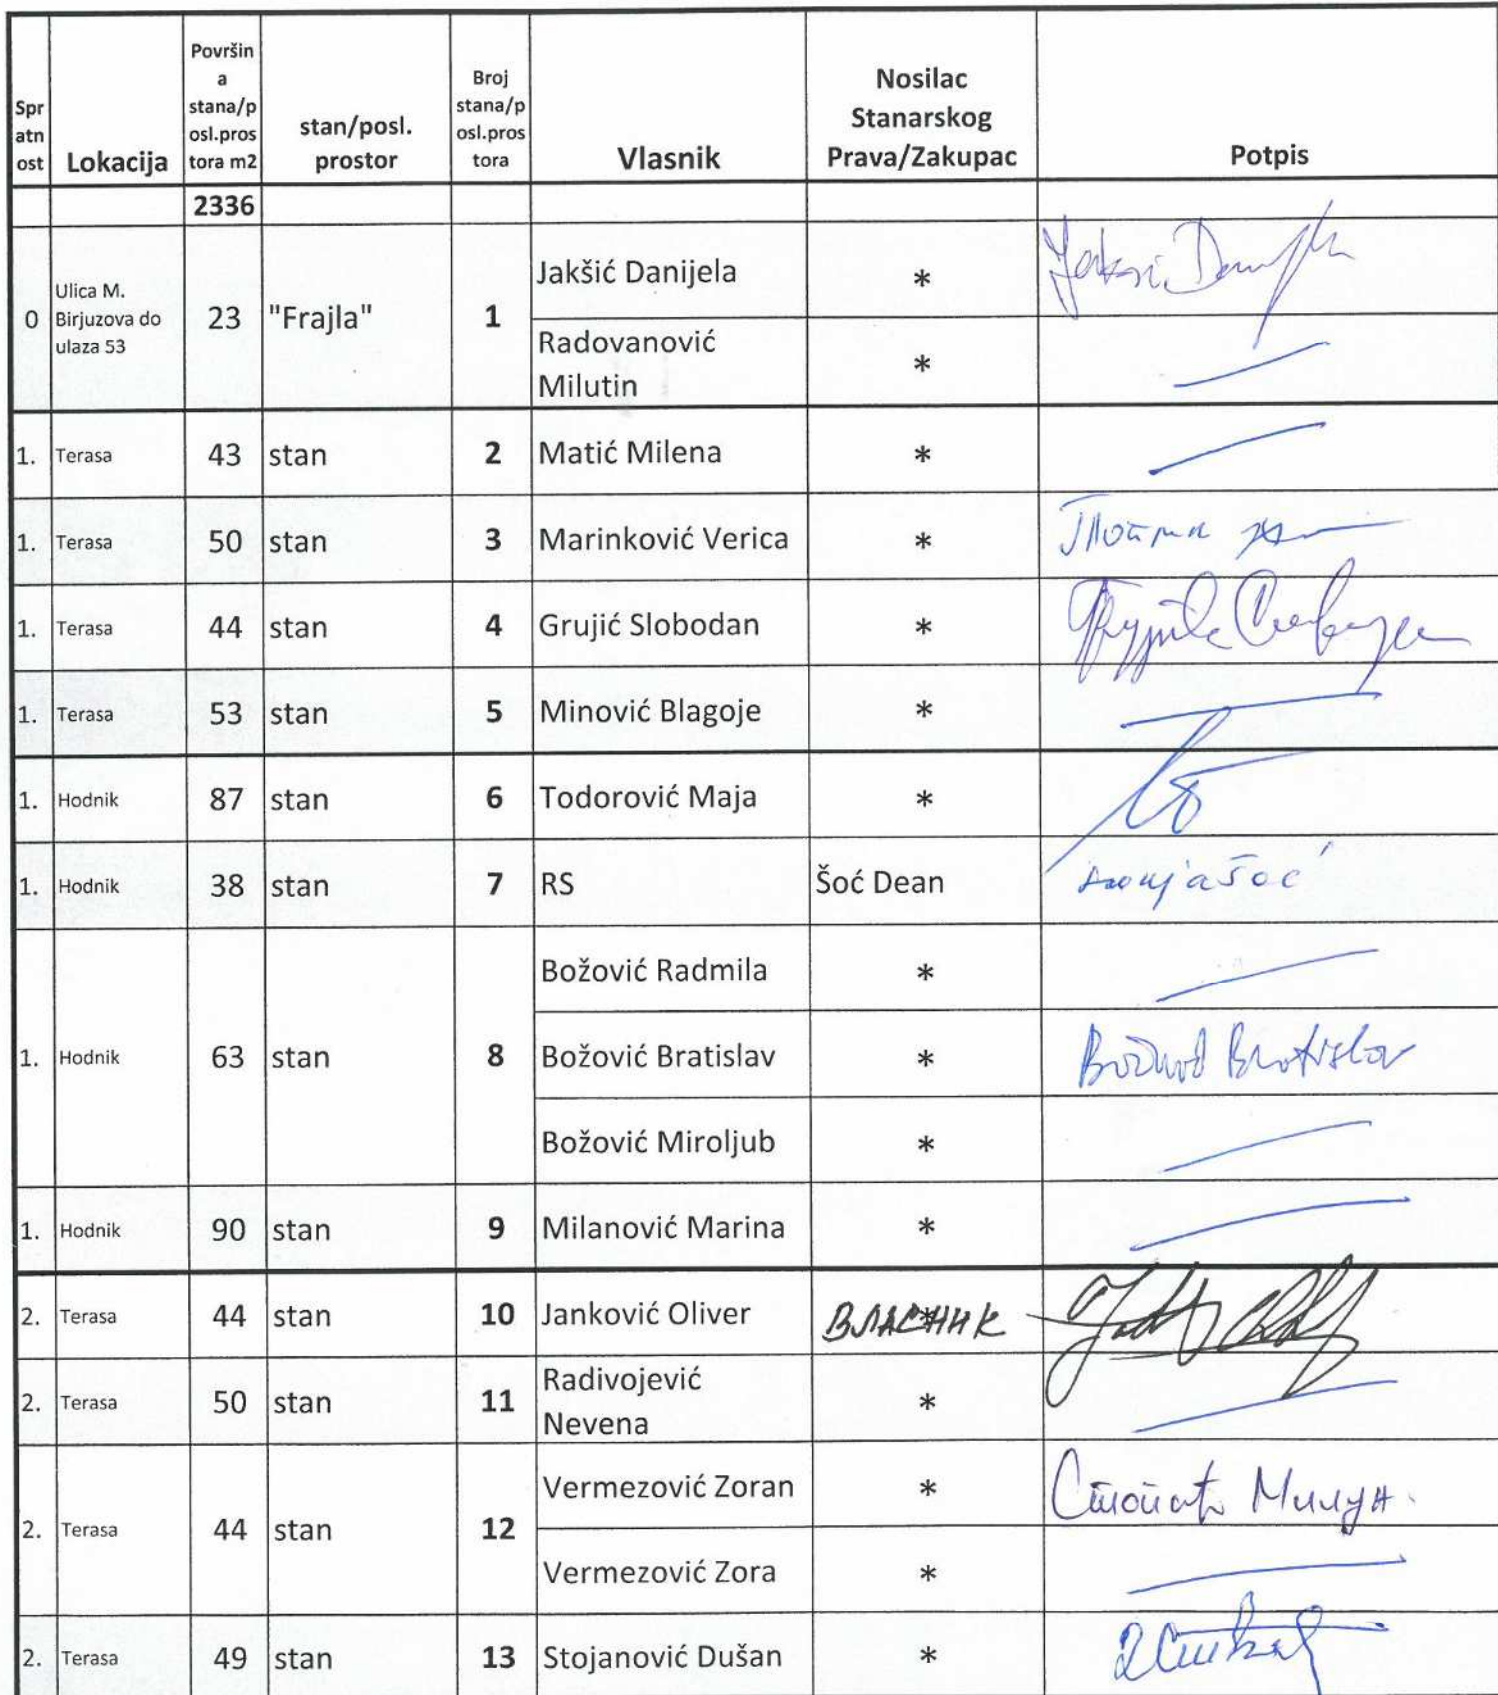 Spr
atn
ost
Lokacija
Površin
a
stana/p
osl.pros
tora m2
stan/posl.
prostor
Broj
stana/p
osl.pros
tora
Vlasnik
Nosilac
Stanarskog
Prava/Zakupac
Potpis
2336
0
Ulica M.
Birjuzova do
ulaza 53
23 "Frajla" 1
Jakšić Danijela *
Radovanović
Milutin
*
1. Terasa 43 stan 2 Matić Milena *
1. Terasa 50 stan 3 Marinković Verica *
1. Terasa 44 stan 4 Grujić Slobodan *
1. Terasa 53 stan 5 Minović Blagoje *
1. Hodnik 87 stan 6 Todorović Maja *
1. Hodnik 38 stan 7 RS Šoć Dean
1. Hodnik 63 stan 8
Božović Radmila *
Božović Bratislav * Bratislav
Božović Miroljub *
1. Hodnik 90 stan 9 Milanović Marina *
2. Terasa 44 stan 10 Janković Oliver ВЛАСНИК
2. Terasa 50 stan 11
Radivojević
Nevena
*
2. Terasa 44 stan 12
Vermezović Zoran * Милун
Vermezović Zora *
2. Terasa 49 stan 13 Stojanović Dušan *